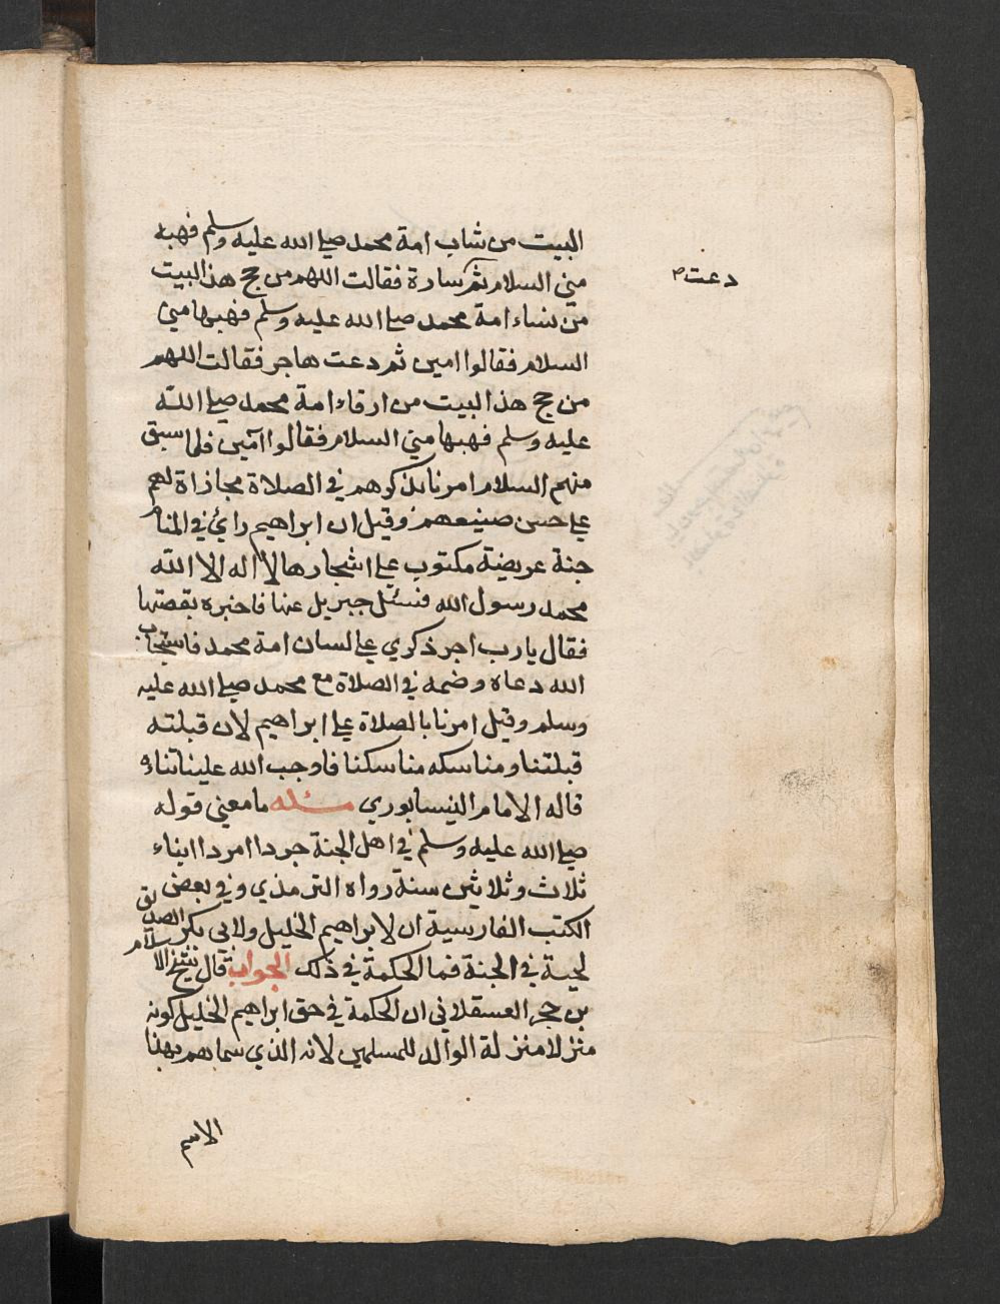 البيت من شاب امة محمد صلى الله عليه وسلم فهبه
مني السلام ثم سارة فقالت اللهم من حج هذا البيت
دعت
من نساء امة محمد صلى الله عليه وسلم فهبها مني
السلام فقالوا امين ثم دعت هاجر فقالت اللهم
من حج هذا البيت من ارقاء امة محمد صلى الله
عليه وسلم فهبها مني السلام فقالوا آمين فلما سبق
منهم السلام امرنا بذكرهم في الصلاة مجازاة لهم
على حسن صنيعهم وقيل ان ابراهيم رائ في المنام
جنة عريضة مكتوب على اشجارها لا اله الا الله
محمد رسول الله فسئل جبريل عنها فاخبره بقصتها
فقال يا رب اجر ذكري على لسان امة محمد فاستجاب
الله دعاه وضمه في الصلاة مع محمد صلى الله عليه
وسلم وقيل امرنا بالصلاة على ابراهيم لان قبلته
قبلتنا ومناسكه مناسكنا فاوجب الله علينا ثناءه
قاله الامام النيسابوري مسئله ما معنى قوله
صلى الله عليه وسلم في اهل الجنة جردا امردا ابناء
ثلاث وثلاثين سنة رواه الترمذي وفي بعض
الكتب الفارسية ان لابراهيم الخليل ولابي بكر الصديق
لحية في الجنة فما الحكمة في ذلك الجواب قال شيخ الاسلام
بن حجر العسقلاني ان الحكمة في حق ابراهيم الخليل كونه
منزلا منزلة الوالد للمسلمين لانه الذي سماهم بهذا
الاسم